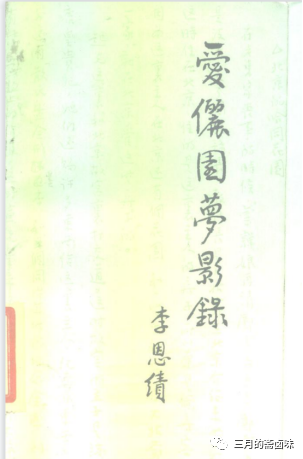 愛儷園夢影錄
李恩績
三月的斋卤味